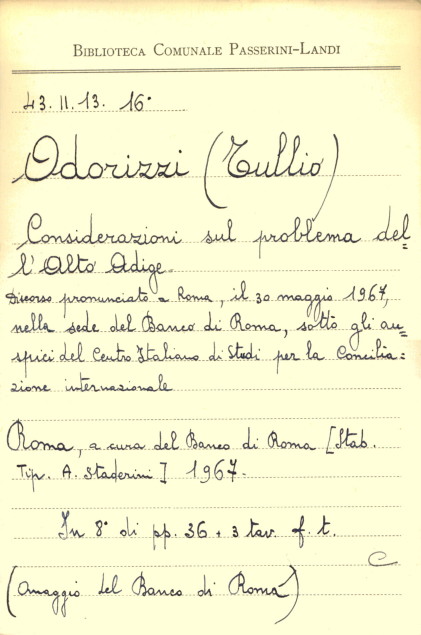 BIBLIOTECA COMUNALE PASSERINI-LANDI
43. II. 13. 16°
Odorizzi (Tullio)
Considerazioni sul problema del=
l'Alto Adige.
Discorso pronunciato a Roma, il 30 maggio 1967,
nella sede del Banco di Roma, sotto gli au=
spici del Centro Italiano di Studi per la Concilia=
zione internazionale
Roma, a cura del Banco di Roma [Stab.
Tip. A. Staderini] 1967.
In 8° di pp. 36 + 3 tav. f. t.
C
(Omaggio del Banco di Roma)